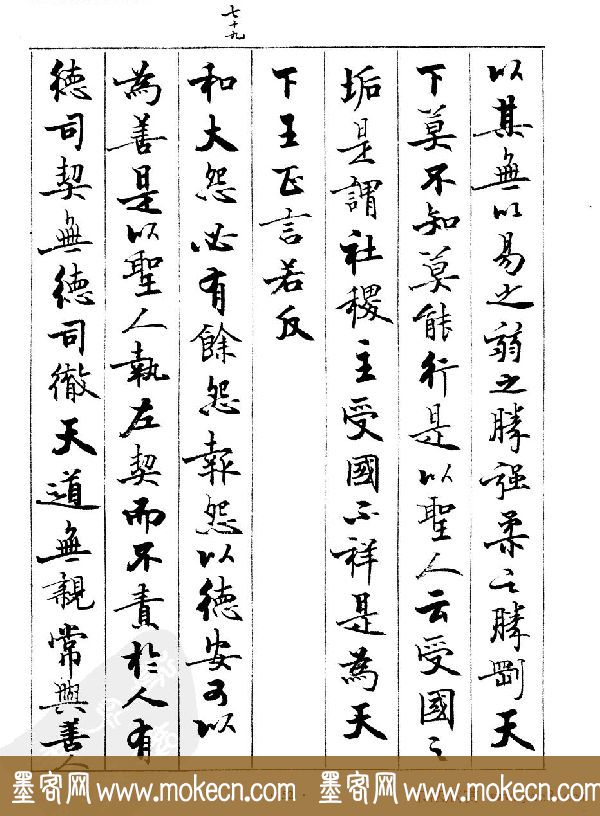 七十九
以其無以易之弱之勝强柔之勝剛天
下莫不知莫能行是以聖人云受國之
垢是謂社稷主受國不祥是為天
下王正言若反
和大怨必有餘怨報怨以德安可以
為善是以聖人執左契而不責於人有
德司契無德司徹天道無親常與善人
墨客网 www.mokecn.com 墨客网 www.mokecn.com